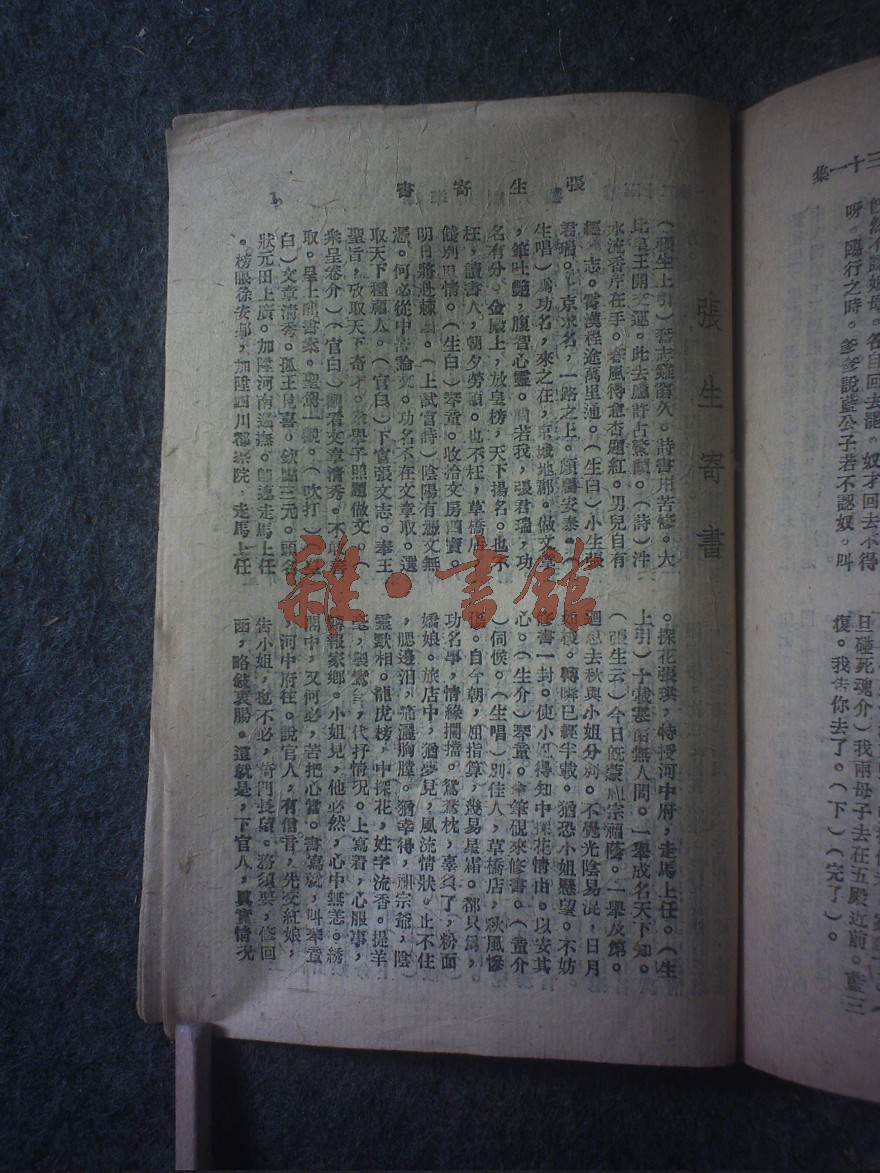 三十一集
旣然不認娘母。各自回去罷。奴才回去不得
呀。臨行之時。爹爹說藍公子若不認奴。叫
旦碰死魂介）我兩母子去在五殿近前。藍三
復。我告你去了。（下）（完了）。
張生寄書
1
張生寄書
（張生上引）奮志雞窗久。詩書用苦修。大
比是王開文運。此去應許占鰲頭。（詩）泮
水流香芹在手。春風得意杏題紅。男兒自有
志。霄漢程途萬里通。（生白）小生張
君瑞。上京求名，一路之上。頗醫安泰。
生唱）爲功名，來之在，京城地郡。做文章
，筆吐艷，腹習心靈。若我，張君瑞，功
名有分。金殿上，放皇榜，天下揚名。也不
枉，讀書人，朝夕勞頓。也不枉，草橋店。
餞別恩情。（生白）琴童。收拾文房四寶。
明日將進棘。（上試官詩）陰陽有憑文無
憑。何必從中苦論文。功名不在文章取。選
取天下種福人。（官白）下官張文志。奉王
聖旨，攷取天下奇才。學子照題做文。（
衆呈卷介）（官白）觀看文章淸秀。不
取。呈上龍書案。聖駕一觀。（吹打）
白）文章淸秀。孤王見喜。欽點三元。頭名
狀元田上廣。加陞河南巡撫。卽速走馬上任
。榜眼徐安邦，加陞四川都察院，走馬上任
。探花張珙，特授河中府，走馬上任。（生
上引）十載寒窗無人問。一舉成名天下知。
（張生云）今日旣蒙祖宗福蔭。一舉及第。
迴思去秋與小姐分別。不覺光陰易混，日月
如梭。轉瞬已經半載。猶恐小姐懸望。不妨
修書一封。使小姐得知中探花情由。以安其
心。（生介）琴童。筆硯來修書。（童介
）伺候。（生唱）別佳人，草橋店，秋風慘
傷。自今朝，屈指算，幾易星霜。都只爲，
功名事，情緣擱擋。鴛鴦枕，辜負了，粉面
嬌娘。旅店中，猶夢見，風流情狀。止不住
，腮邊泪，滴濕胸膛。猶幸得，祖宗爺，陰
靈默相。龍虎榜，中探花，姓字流香。提羊
毫，製鸞箋，代抒情況。上寫着，心服事，
轉報家鄉。小姐見，他必然，心中無恙。綉
閣中，又何必，苦把心當。書寫就，叫琴童
，河中府往。說官人，有信音，先交紅娘，
告小姐，也不必，倚門長望。務須要，修回
函，略敍衷腸。還就是，下官人，真實情况
雜·書館